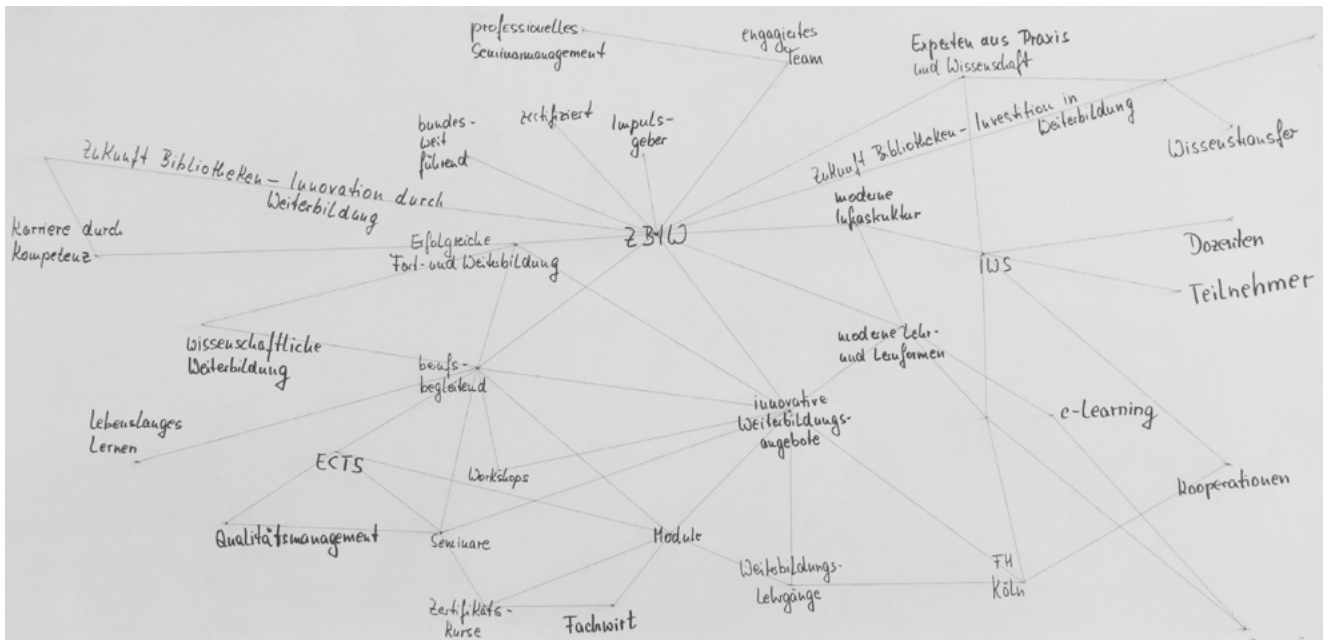 professionelles
Seminarmanagement
engagiertes
Team
Experten aus Praxis
und Wissenschaft
bundes-
weit
führend
zertifiziert
Impuls-
geber
Zukunft Bibliotheken - Investition in
Weiterbildung
Wissenstransfer
Zukunft Bibliotheken - Innovation durch
Weiterbildung
moderne
Infrastruktur
Karriere durch
Kompetenz
Erfolgreiche
Fort- und Weiterbildung
ZBIW
IWS
Dozenten
Teilnehmer
wissenschaftliche
Weiterbildung
berufs-
begleitend
moderne Lehr-
und Lernformen
Lebenslanges
Lernen
innovative
Weiterbildungs-
angebote
e-Learning
ECTS
Workshops
Kooperationen
Qualitätsmanagement
Seminare
Module
Weiterbildungs-
Lehrgänge
FH
Köln
Zertifikats-
kurse
Fachwirt